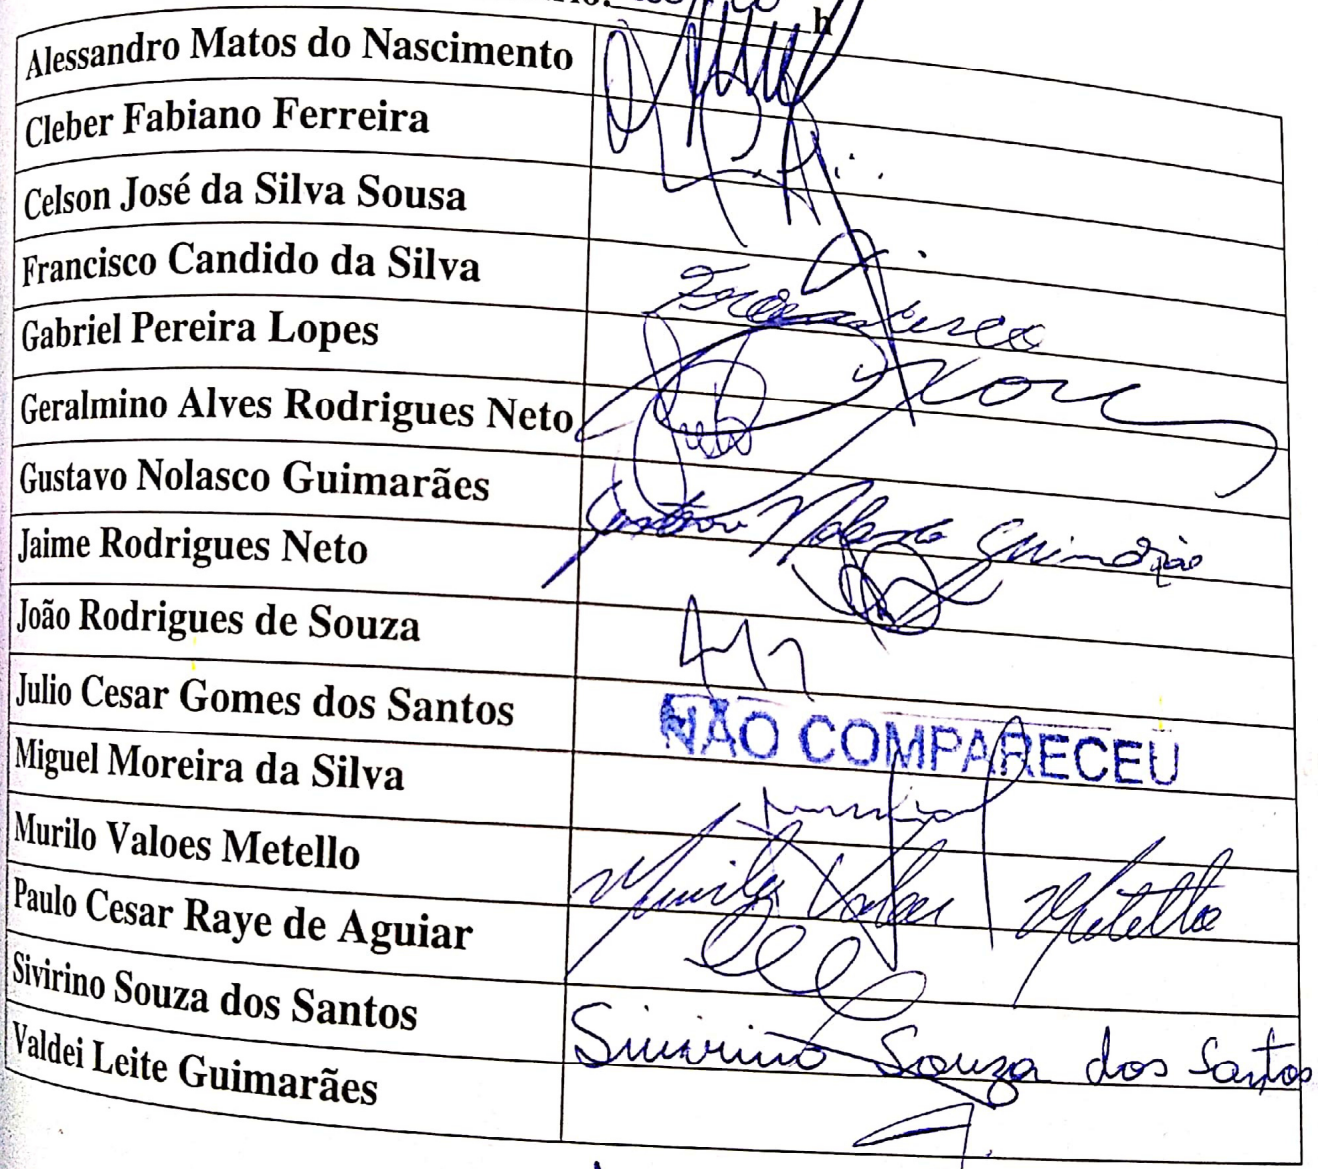 h
Alessandro Matos do Nascimento
Cleber Fabiano Ferreira
Celson José da Silva Sousa
Francisco Candido da Silva
Francisco
Gabriel Pereira Lopes
Geralmino Alves Rodrigues Neto
Neto
Gustavo Nolasco Guimarães
Gustavo Nolasco Guimarães
Jaime Rodrigues Neto
João Rodrigues de Souza
Julio Cesar Gomes dos Santos
NÃO COMPARECEU
Miguel Moreira da Silva
Murilo Valoes Metello
Murilo Valoes Metello
Paulo Cesar Raye de Aguiar
Sivirino Souza dos Santos
Sivirino Souza dos Santos
Valdei Leite Guimarães